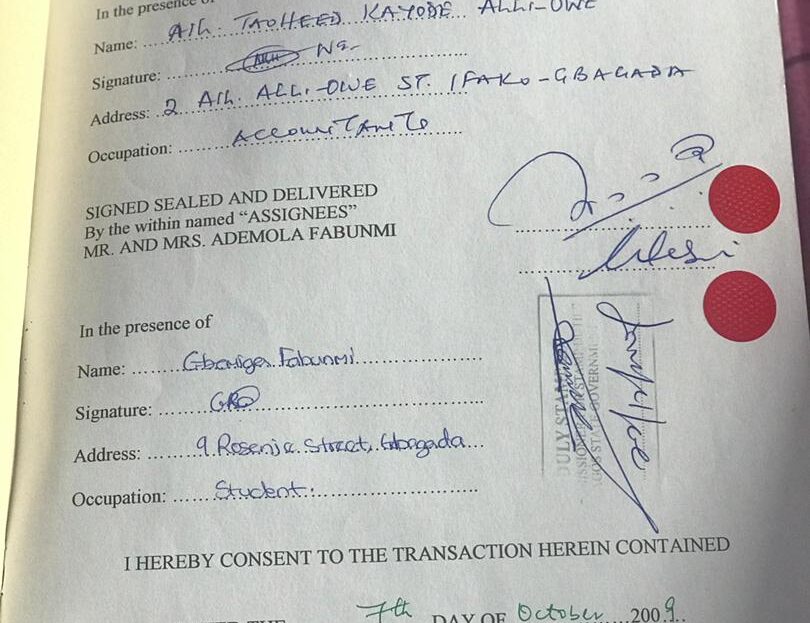 In the presence of
Name: Alh. TAOHEED KAYODE ALLI-OWE
Signature:
Address: 2 Alh. ALLI-OWE ST. IFAKO-GBAGADA
Occupation:
SIGNED SEALED AND DELIVERED
By the within named “ASSIGNEES”
MR. AND MRS. ADEMOLA FABUNMI
In the presence of
Name: Fabunmi
Signature:
Address: 9 Street, Gbagada
Occupation: Student.
DULY STAM
I HEREBY CONSENT TO THE TRANSACTION HEREIN CONTAINED
THE 7th DAY OF October 2009